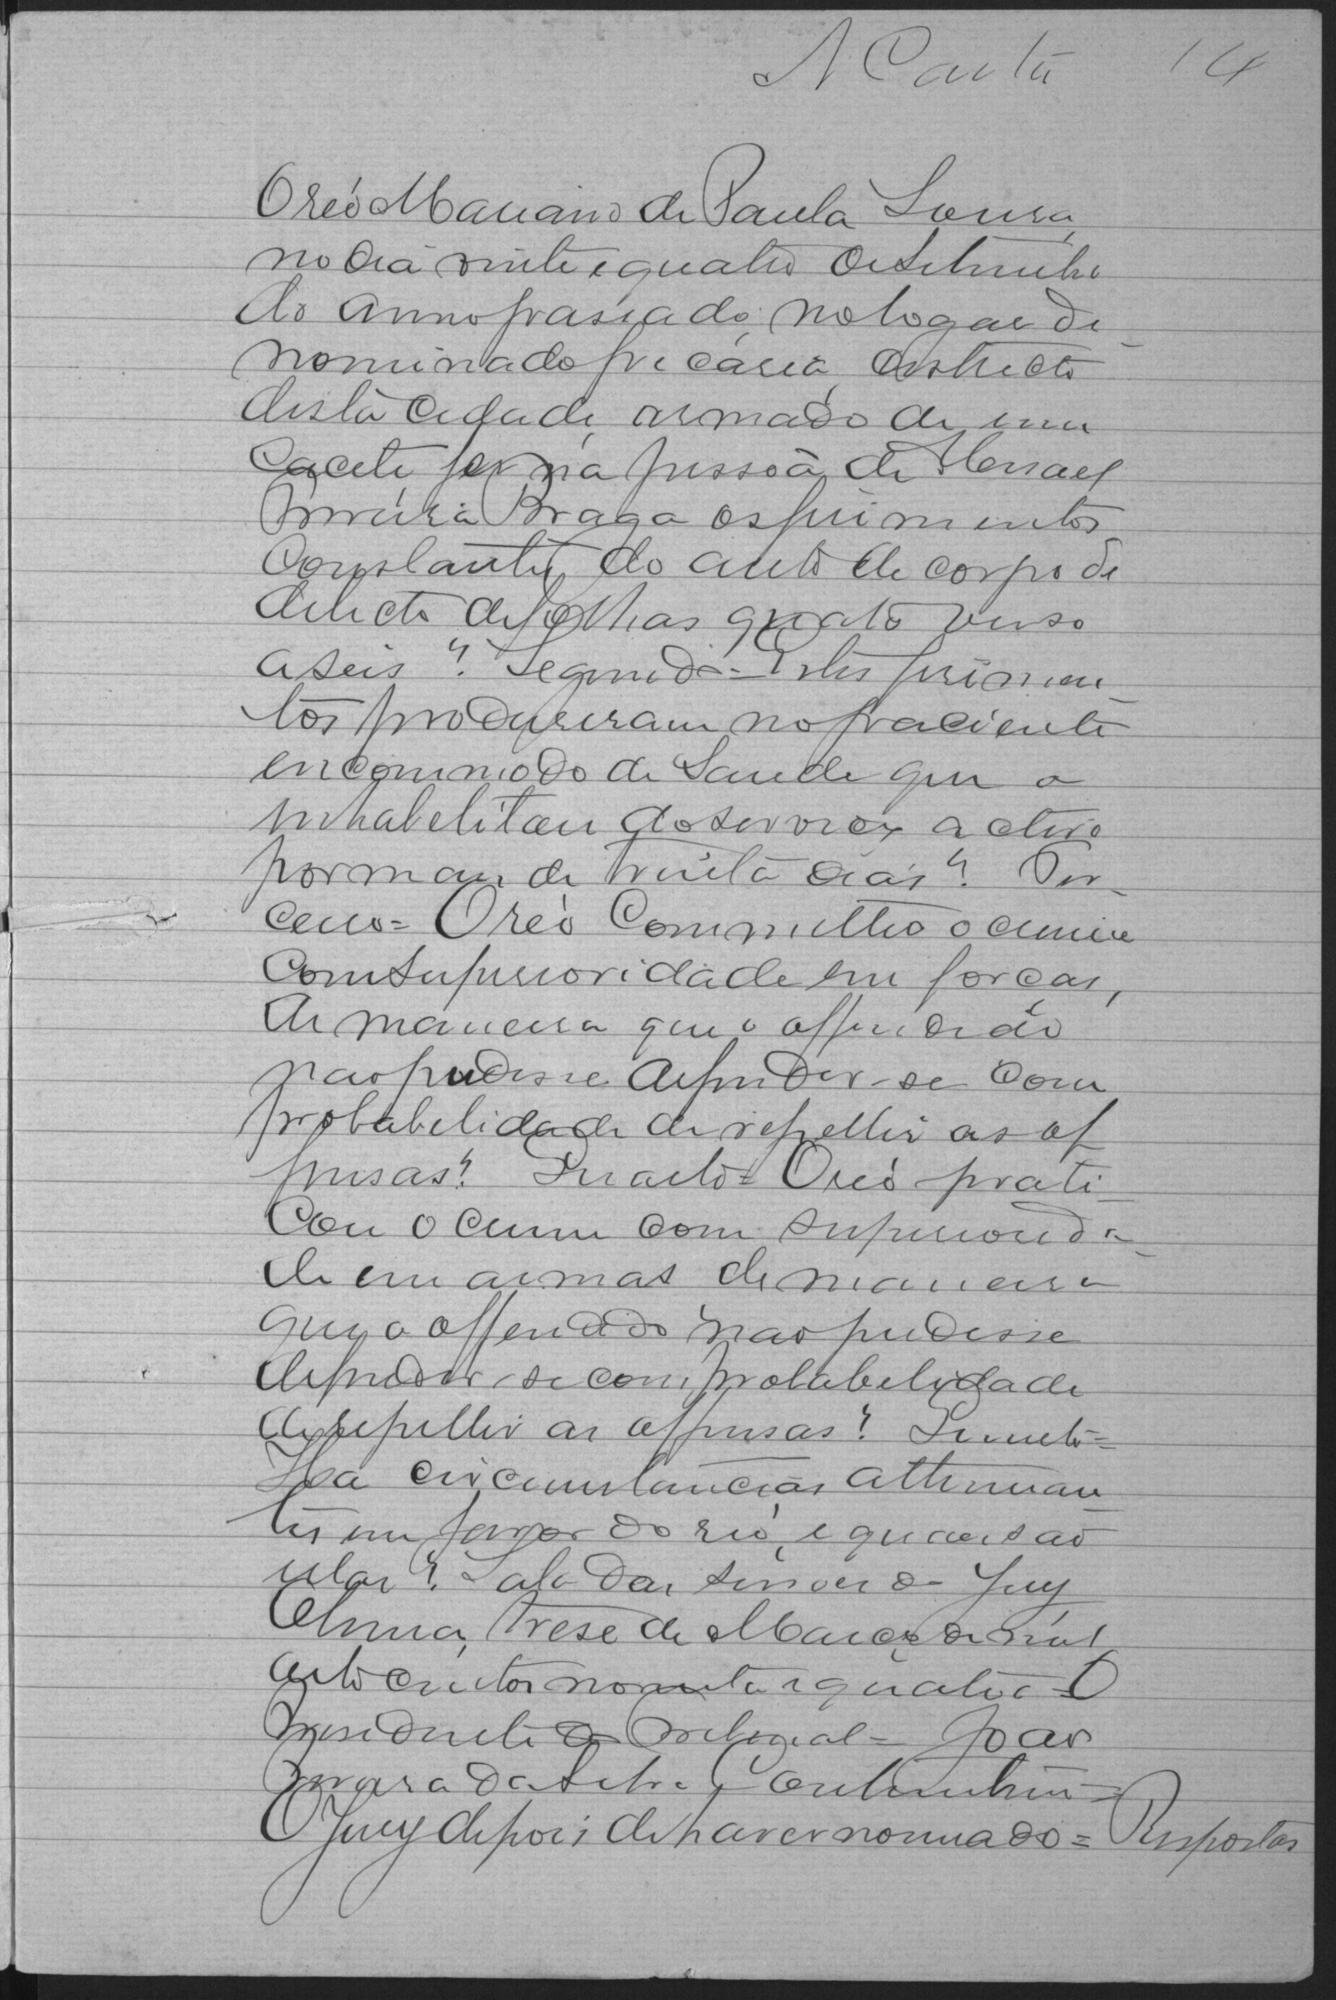 N Costa 14
O réo Mariano de Paula Sousa,
no dia vinte e quatro de Setembro
do anno passado, no logar de-
nominado precaria, districto
desta cidade, armado de um
cacete fez na pessoa de Manoel
Pereira Braga os ferimentos
constantes do auto de corpo de
delicto de folhas quatro verso
a seis? Segundo = Estes ferimen-
tos produziram no paciente
encommodo de Saude que o
inhabelitou do serviço activo
por mais de trinta dias? Ter-
ceiro = O réo Commetteo o crime
com superioridade em forças,
de maneira que o offendido
não pudesse defender-se com
probabelidade de repellir as of
fensas? Quarto = O réo prati-
cou o crime com superiorida-
de em armas de maneira
que o offendido não pudesse
defender-se com probabelidade
de repellir as offensas? Quinto =
Ha circumstancias attenuan-
tes em favor do réo, e quaes são
ellas? Sala das sessões do Jury
trese de Março de mil
oito centos noventa e quatro = O
Presidente do Tribunal = João
Pereira da Silva Coutinho =
O Jury depois de haver nomeado = Respostas